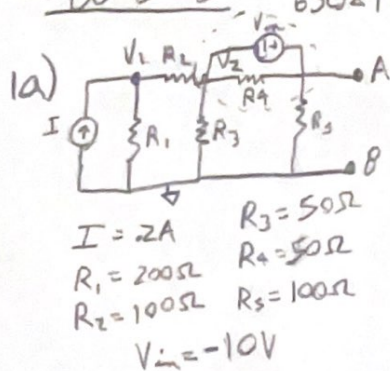 1a)
V₁ R₂ V₂ Vin
I R₁ R₃ R₄ R₅ A
B
I = .2A
R₁ = 200Ω
R₂ = 100Ω
R₃ = 50Ω
R₄ = 50Ω
R₅ = 100Ω
Vin = -10V